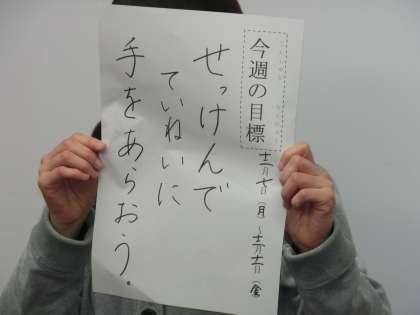 今週の目標
十二月七日(月)~十二月十一日(金)
せっけんで
ていねいに
手をあらおう。